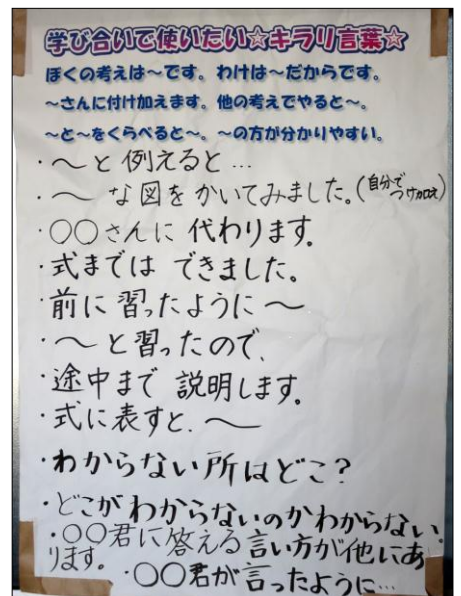 学び合いで使いたい☆キラリ言葉☆
ぼくの考えは～です。わけは～だからです。
～さんに付け加えます。他の考えでやると～。
～と～をくらべると～。～の方が分かりやすい。
・～と例えると…
・～な図をかいてみました。(自分でつけ加え)
・○○さんに代わります。
・式まではできました。
・前に習ったように～
・～と習ったので、
・途中まで説明します。
・式に表すと、～
・わからない所はどこ？
・どこがわからないのかわからない。
・○○君に答える言い方が他にあ
ります。
・○○君が言ったように…